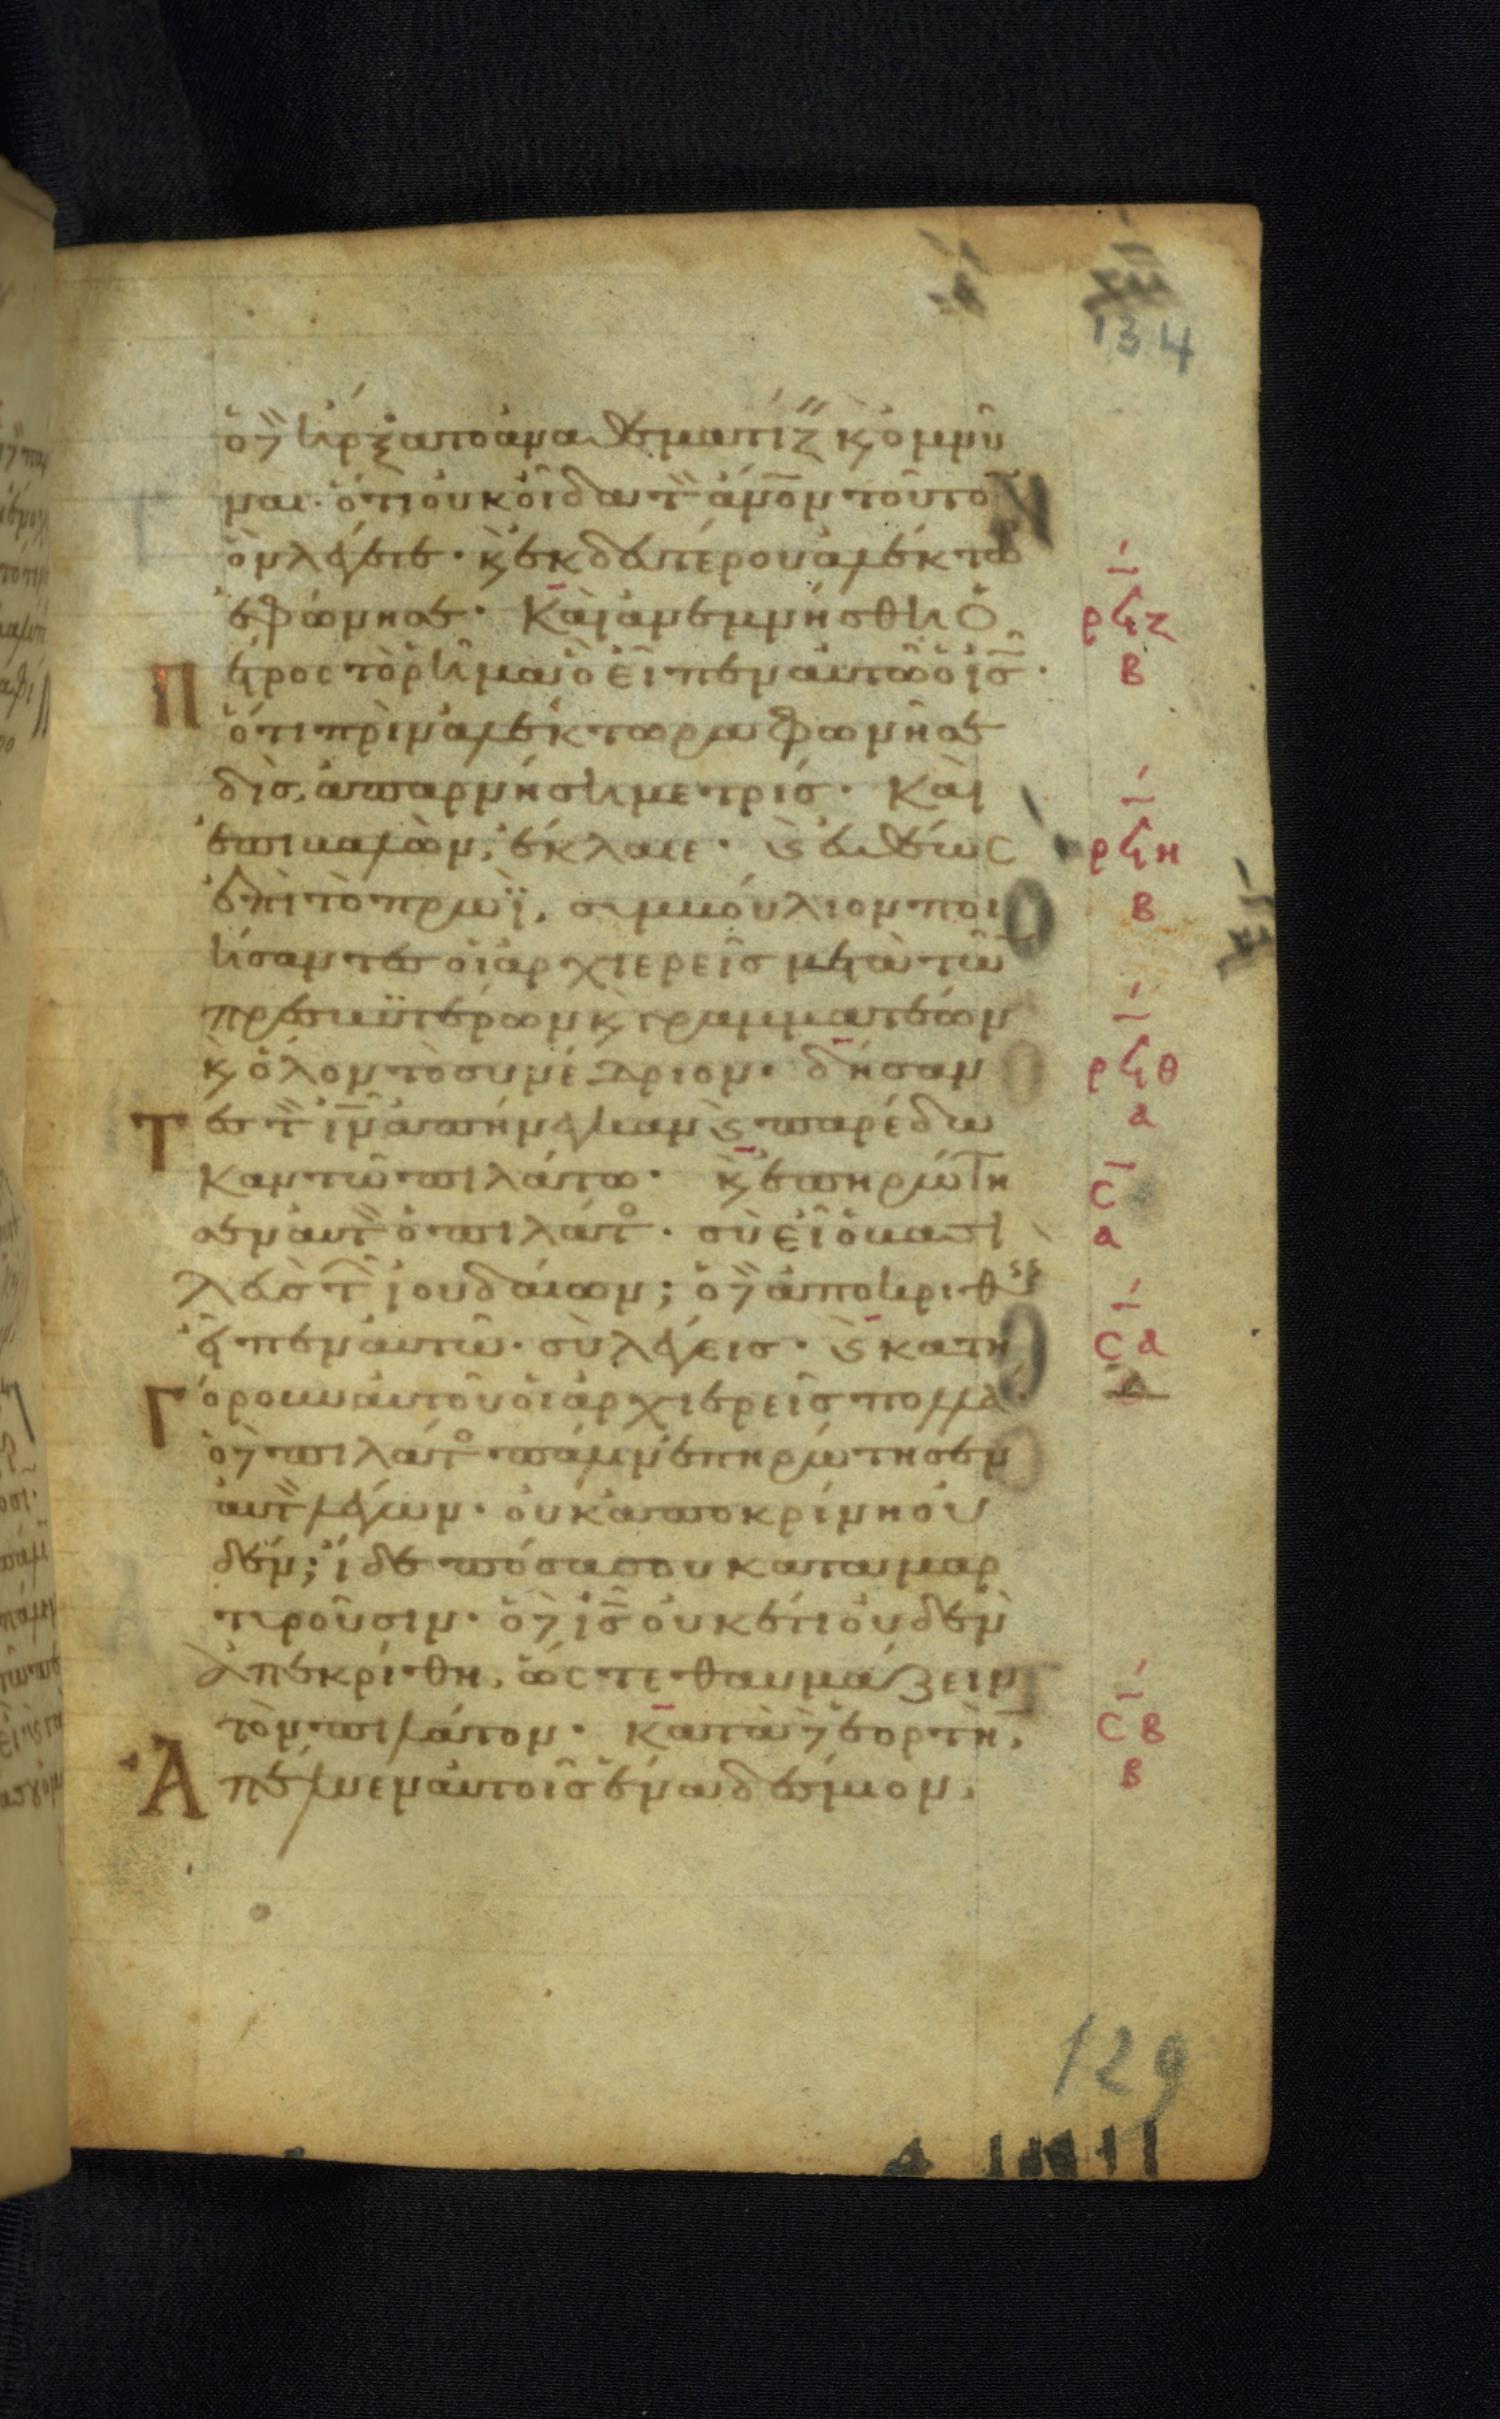 134
ὁ δὲ ἤρξατο ἀναθεματίζειν κ ὀμνύ
ναι· ὅτι οὐκ οἶδα τὸν ἄνον τοῦτον
ὃν λέγετε· κ ἐκ δευτέρου ἀλέκτωρ
ἐφώνησε· Καὶ ἀνεμνήσθη ὁ
Πέτρος τὸ ῥῆμα ὃ εἶπεν αὐτῶ ὁ ις·
ὅτι πρὶν ἀλέκτωρα φωνῆσαι
δὶς, ἀπαρνήσῃ με τρίς· Καὶ
ἐπιβαλὼν, ἔκλαιε· κ εὐθέως
ἐπὶ τὸ πρωῒ, συμβούλιον ποι
ήσαντες οἱ ἀρχιερεῖς μετὰ τῶν
πρεσβυτέρων κ γραμματέων
κ ὅλον τὸ συνέδριον· δήσαν
Τες τὸν ιν ἀπήνεγκαν κ παρέδω
καν τῶ πιλάτω· κ ἐπηρώτη
σεν αὐτὸν ὁ πιλάτος· σὺ εἶ ὁ βασι
λεὺς τῶν ἰουδαίων; ὁ δὲ ἀποκριθεὶς
εἶπεν αὐτῶ· σὺ λέγεις· κ κατη
Γόρουν αὐτοῦ οἱ ἀρχιερεῖς πολλά·
ὁ δὲ πιλάτος πάλιν ἐπηρώτησεν
αὐτὸν λέγων· οὐκ ἀποκρίνη οὐ
δέν; ἴδε πόσα σου καταμαρ
τυροῦσιν· ὁ δὲ ις οὐκέτι οὐδὲν
ἀπεκρίθη, ὥστε θαυμάζειν
τὸν πιλάτον· κατὰ δὲ ἑορτὴν,
Ἀπέλυεν αὐτοῖς ἕνα δέσμιον,
ρϟζ
β
ρϟη
β
ρϟθ
α
ς
α
ς α
ς β
β
129